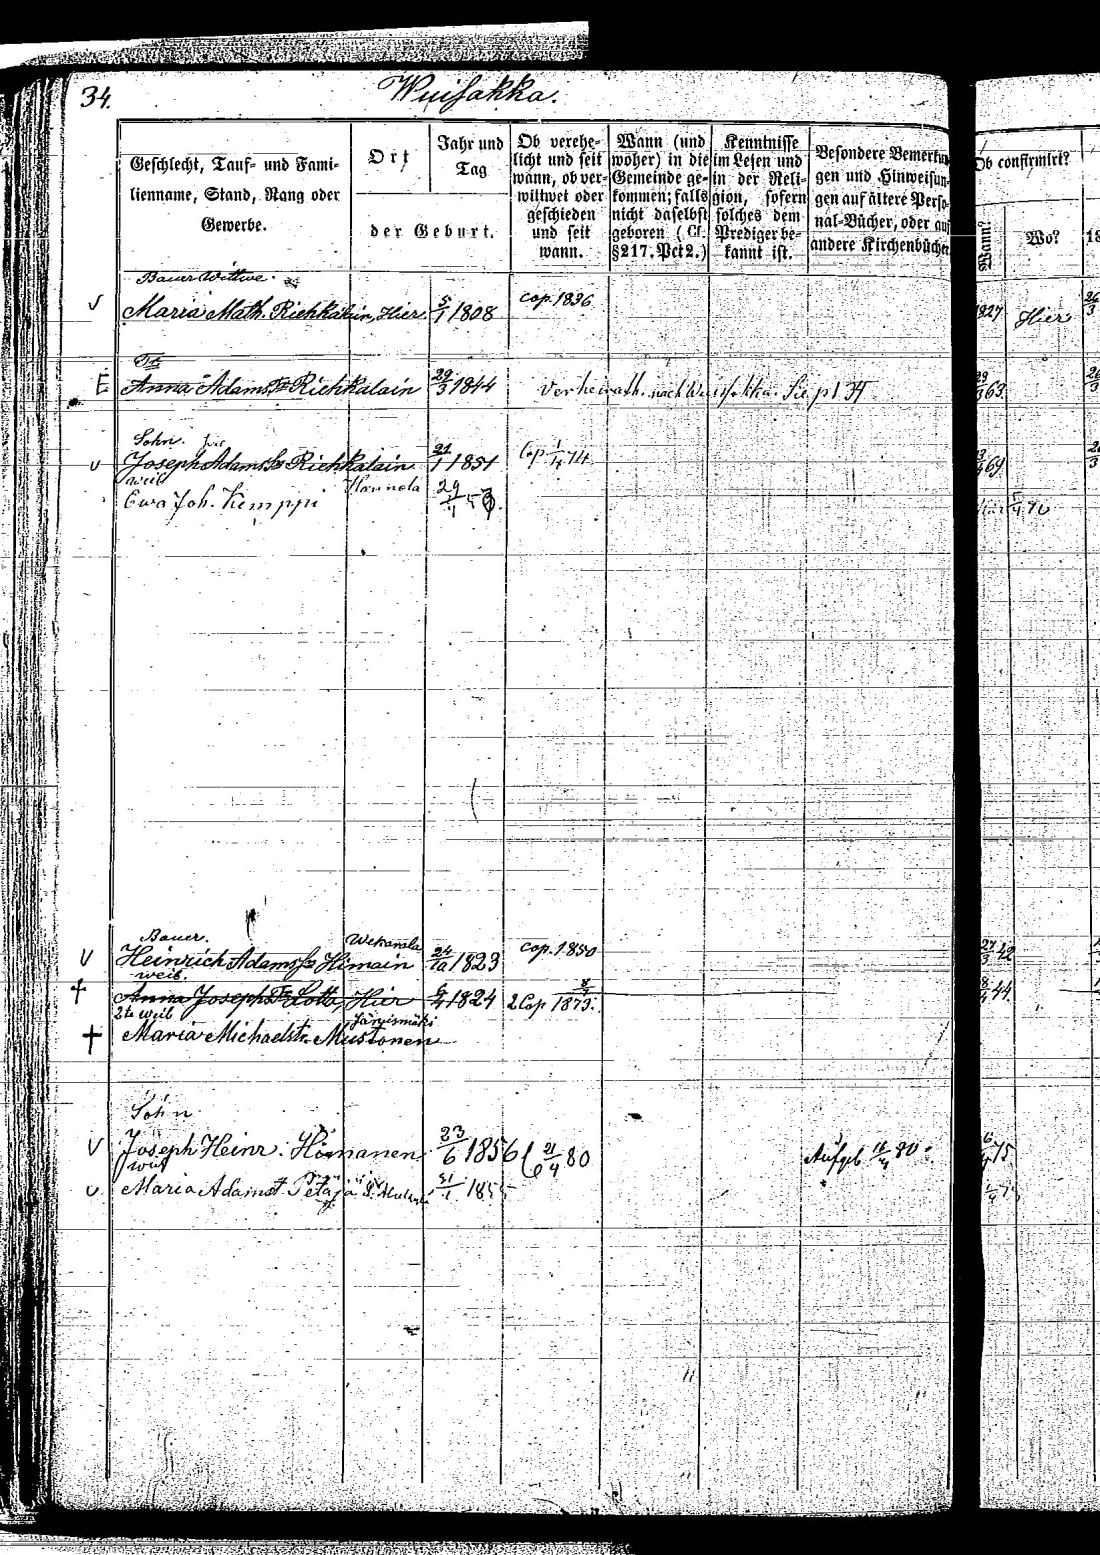 34.
Wuisakka.
Geschlecht, Tauf- und Fami-
lienname, Stand, Rang oder
Gewerbe.
Ort
Jahr und
Tag
der Geburt.
Ob verehe-
licht und seit
wann, ob ver-
wittwet oder
geschieden
und seit
wann.
Wann (und
woher) in die
Gemeinde ge-
kommen; falls
nicht daselbst
geboren (Cf.
§217. Pct 2.)
Kenntnisse
im Lesen und
in der Reli-
gion, sofern
solches dem
Prediger be-
kannt ist.
Besondere Bemerkun
gen und Hinweisun
gen auf ältere Perso-
nal-Bücher, oder auf
andere Kirchenbücher
Ob confirmirt?
Wann?
Wo?
18
Bauer Wittwe.
V Maria Math. Riehkalain, Hier 5/1 1808 cop. 1836 1827 Hier
E Anna Adams Riehkalain 29/3 1844 Verheirath. nach Wuisakka. 63
Sohn. hier
v Joseph Adams Riehkalain 21/1 1851 Cop. 1/4 74 69
weib
Ewa Joh. Kemppi 29
Bauer. Wekansla
V Heinrich Adams Himain 24/10 1823 cop. 1850 27/3 42
weib.
† Anna Josephs Lotta, Hier 6/4 1824 2 Cop 1873. 8/4 44
2te weib Järvismäki
† Maria Michaelstr. Mustonen
Sohn
V Joseph Heinr. Himanen 23/6 1856 21/4 80 Aufgeb. 80 75
weib
v. Maria Adamst. Petäjä 31/1 185